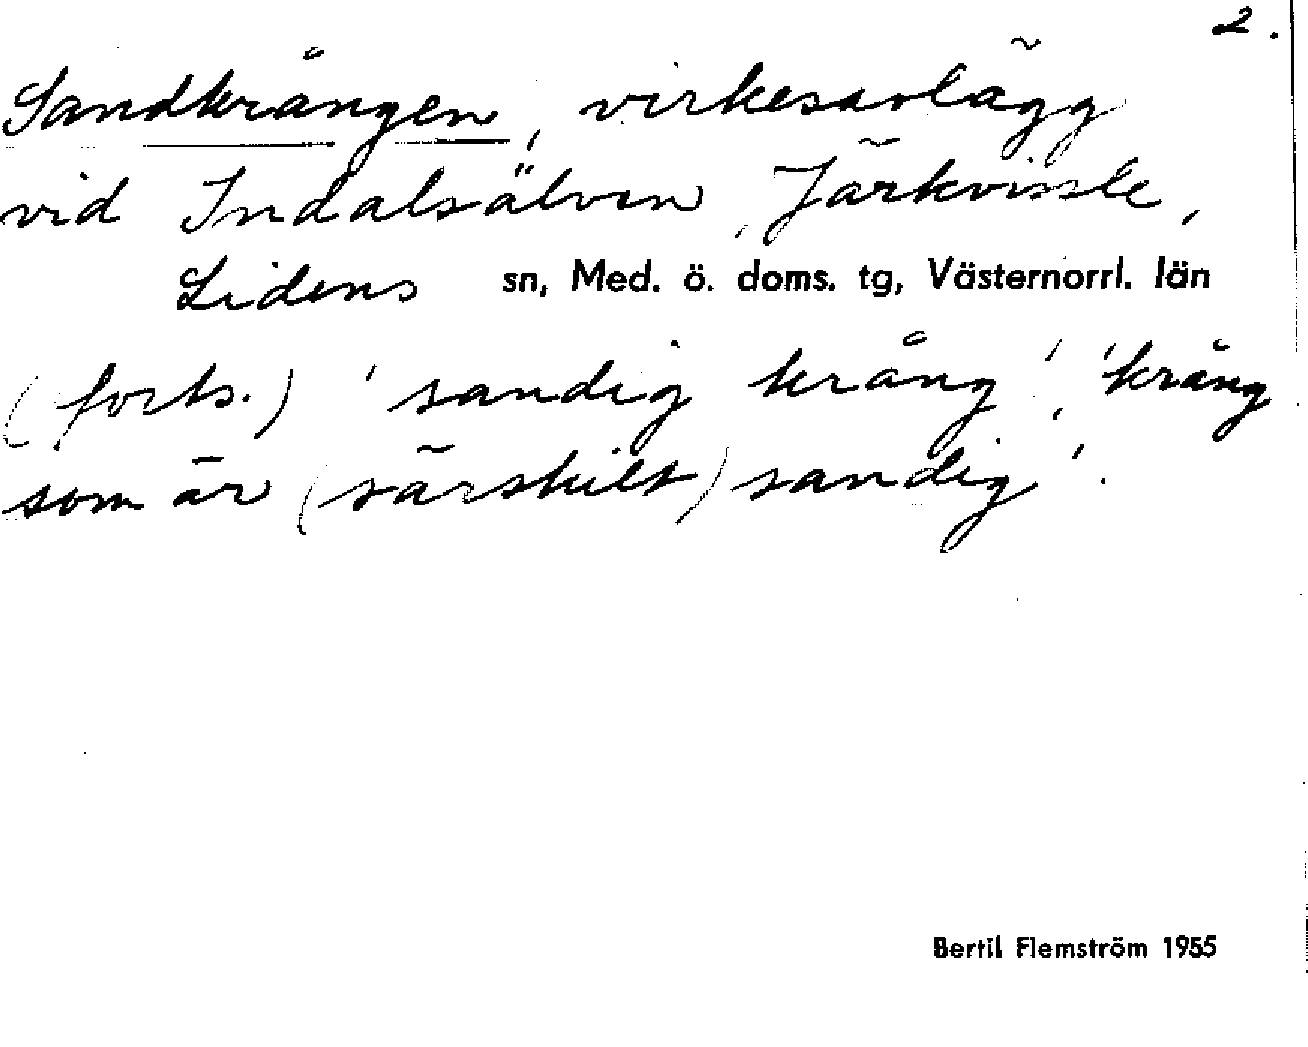 2.
Sandkrången, virkesavlägg
vid Indalsälven, Järkvissle,
Lidens sn, Med. ö. doms. tg, Västernorrl. län
(forts.) 'sandig krång', 'krång
som är (särskilt) sandig'.
Bertil Flemström 1955